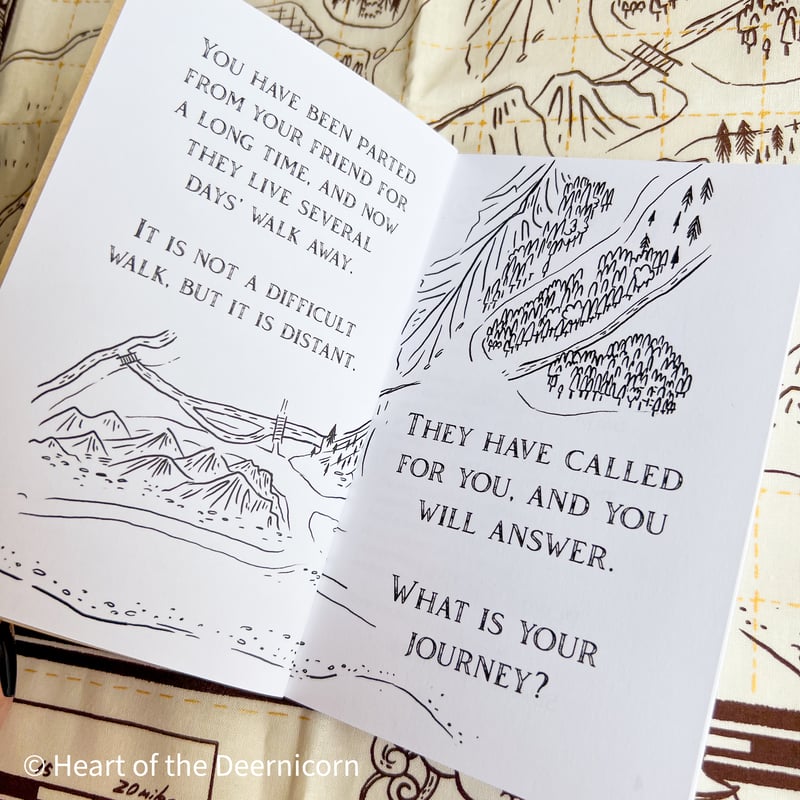 You have been parted
from your friend for
a long time, and now
they live several
days' walk away.
It is not a difficult
walk, but it is distant.
They have called
for you, and you
will answer.
What is your
journey?
© Heart of the Deernicorn